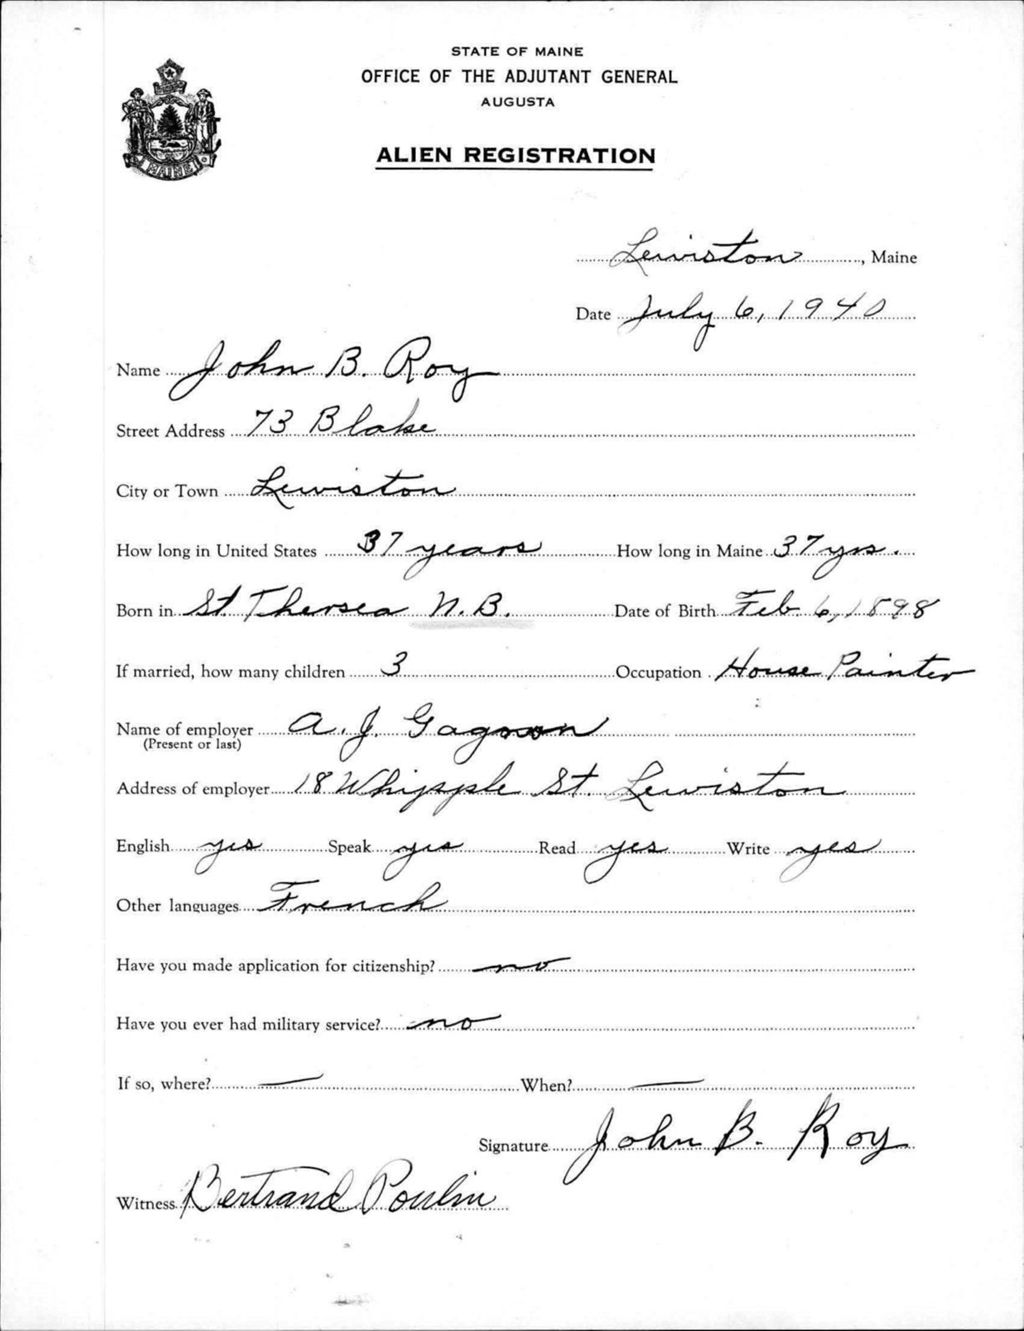 STATE OF MAINE
OFFICE OF THE ADJUTANT GENERAL
AUGUSTA
ALIEN REGISTRATION
MAINE
Lewiston, Maine
Date July 6, 1940
Name John B. Roy
Street Address 73 Blake
City or Town Lewiston
How long in United States 37 years How long in Maine 37 yrs.
Born in St Thersea N.B. Date of Birth Feb 6, 1898
If married, how many children 3 Occupation House Painter
Name of employer A. J. Gagnon
(Present or last)
Address of employer 18 Whipple St. Lewiston
English yes Speak yes Read yes Write yes
Other languages French
Have you made application for citizenship? no
Have you ever had military service? no
If so, where? — When? —
Signature John B. Roy
Witness Bertrand Poulin